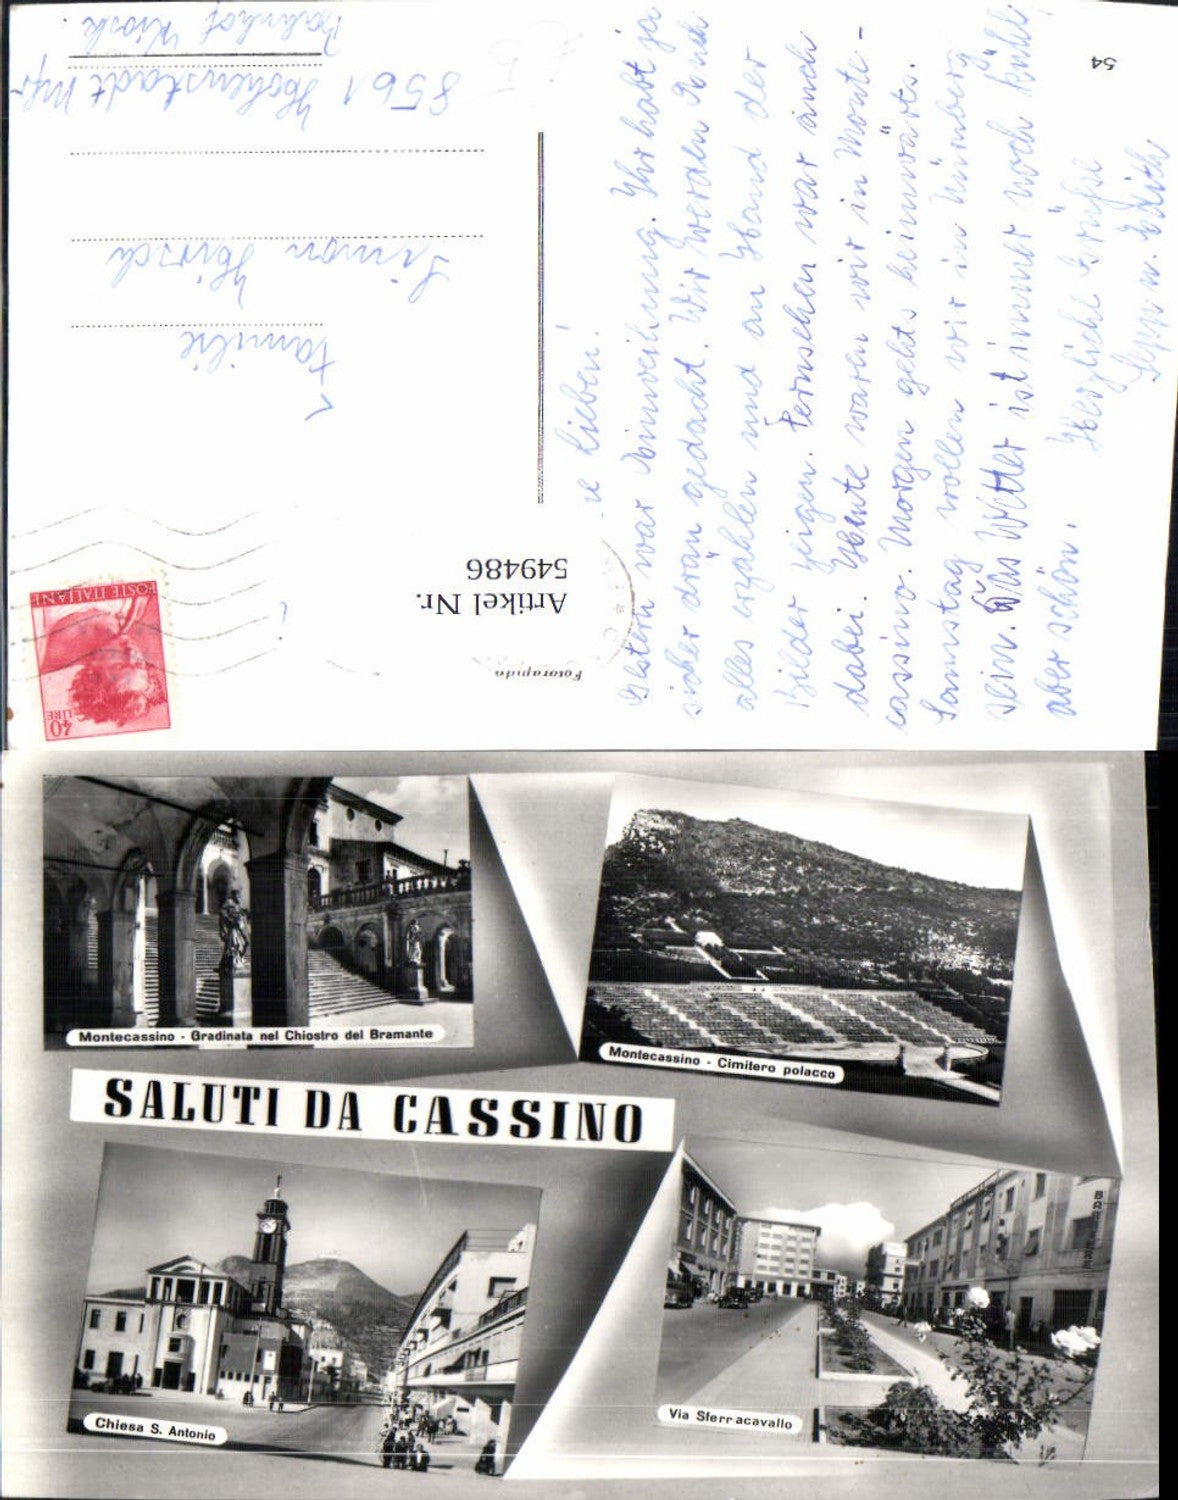 Meine Lieben!
Gestern war Einweihung. Ihr habt ja
sicher dran gedacht. Wir werden Euch
alles erzählen und an Hand der
Bilder zeigen. Fernsehen war auch
dabei. Heute waren wir in Monte-
cassino. Morgen gehts heimwärts.
Samstag wollen wir in Nürnberg
sein. Das Wetter ist immer noch kühl,
aber schön.
Herzliche Grüße
Sepp u. Edith
54
Fotorapida
Artikel Nr.
549486
40 LIRE
POSTE ITALIANE
Familie
Simon Hirsch
8561 Hohenstadt Mfr
Bahnhof Kiosk
Montecassino - Gradinata nel Chiostro del Bramante
Montecassino - Cimitero polacco
SALUTI DA CASSINO
Chiesa S. Antonio
Via Sferracavallo